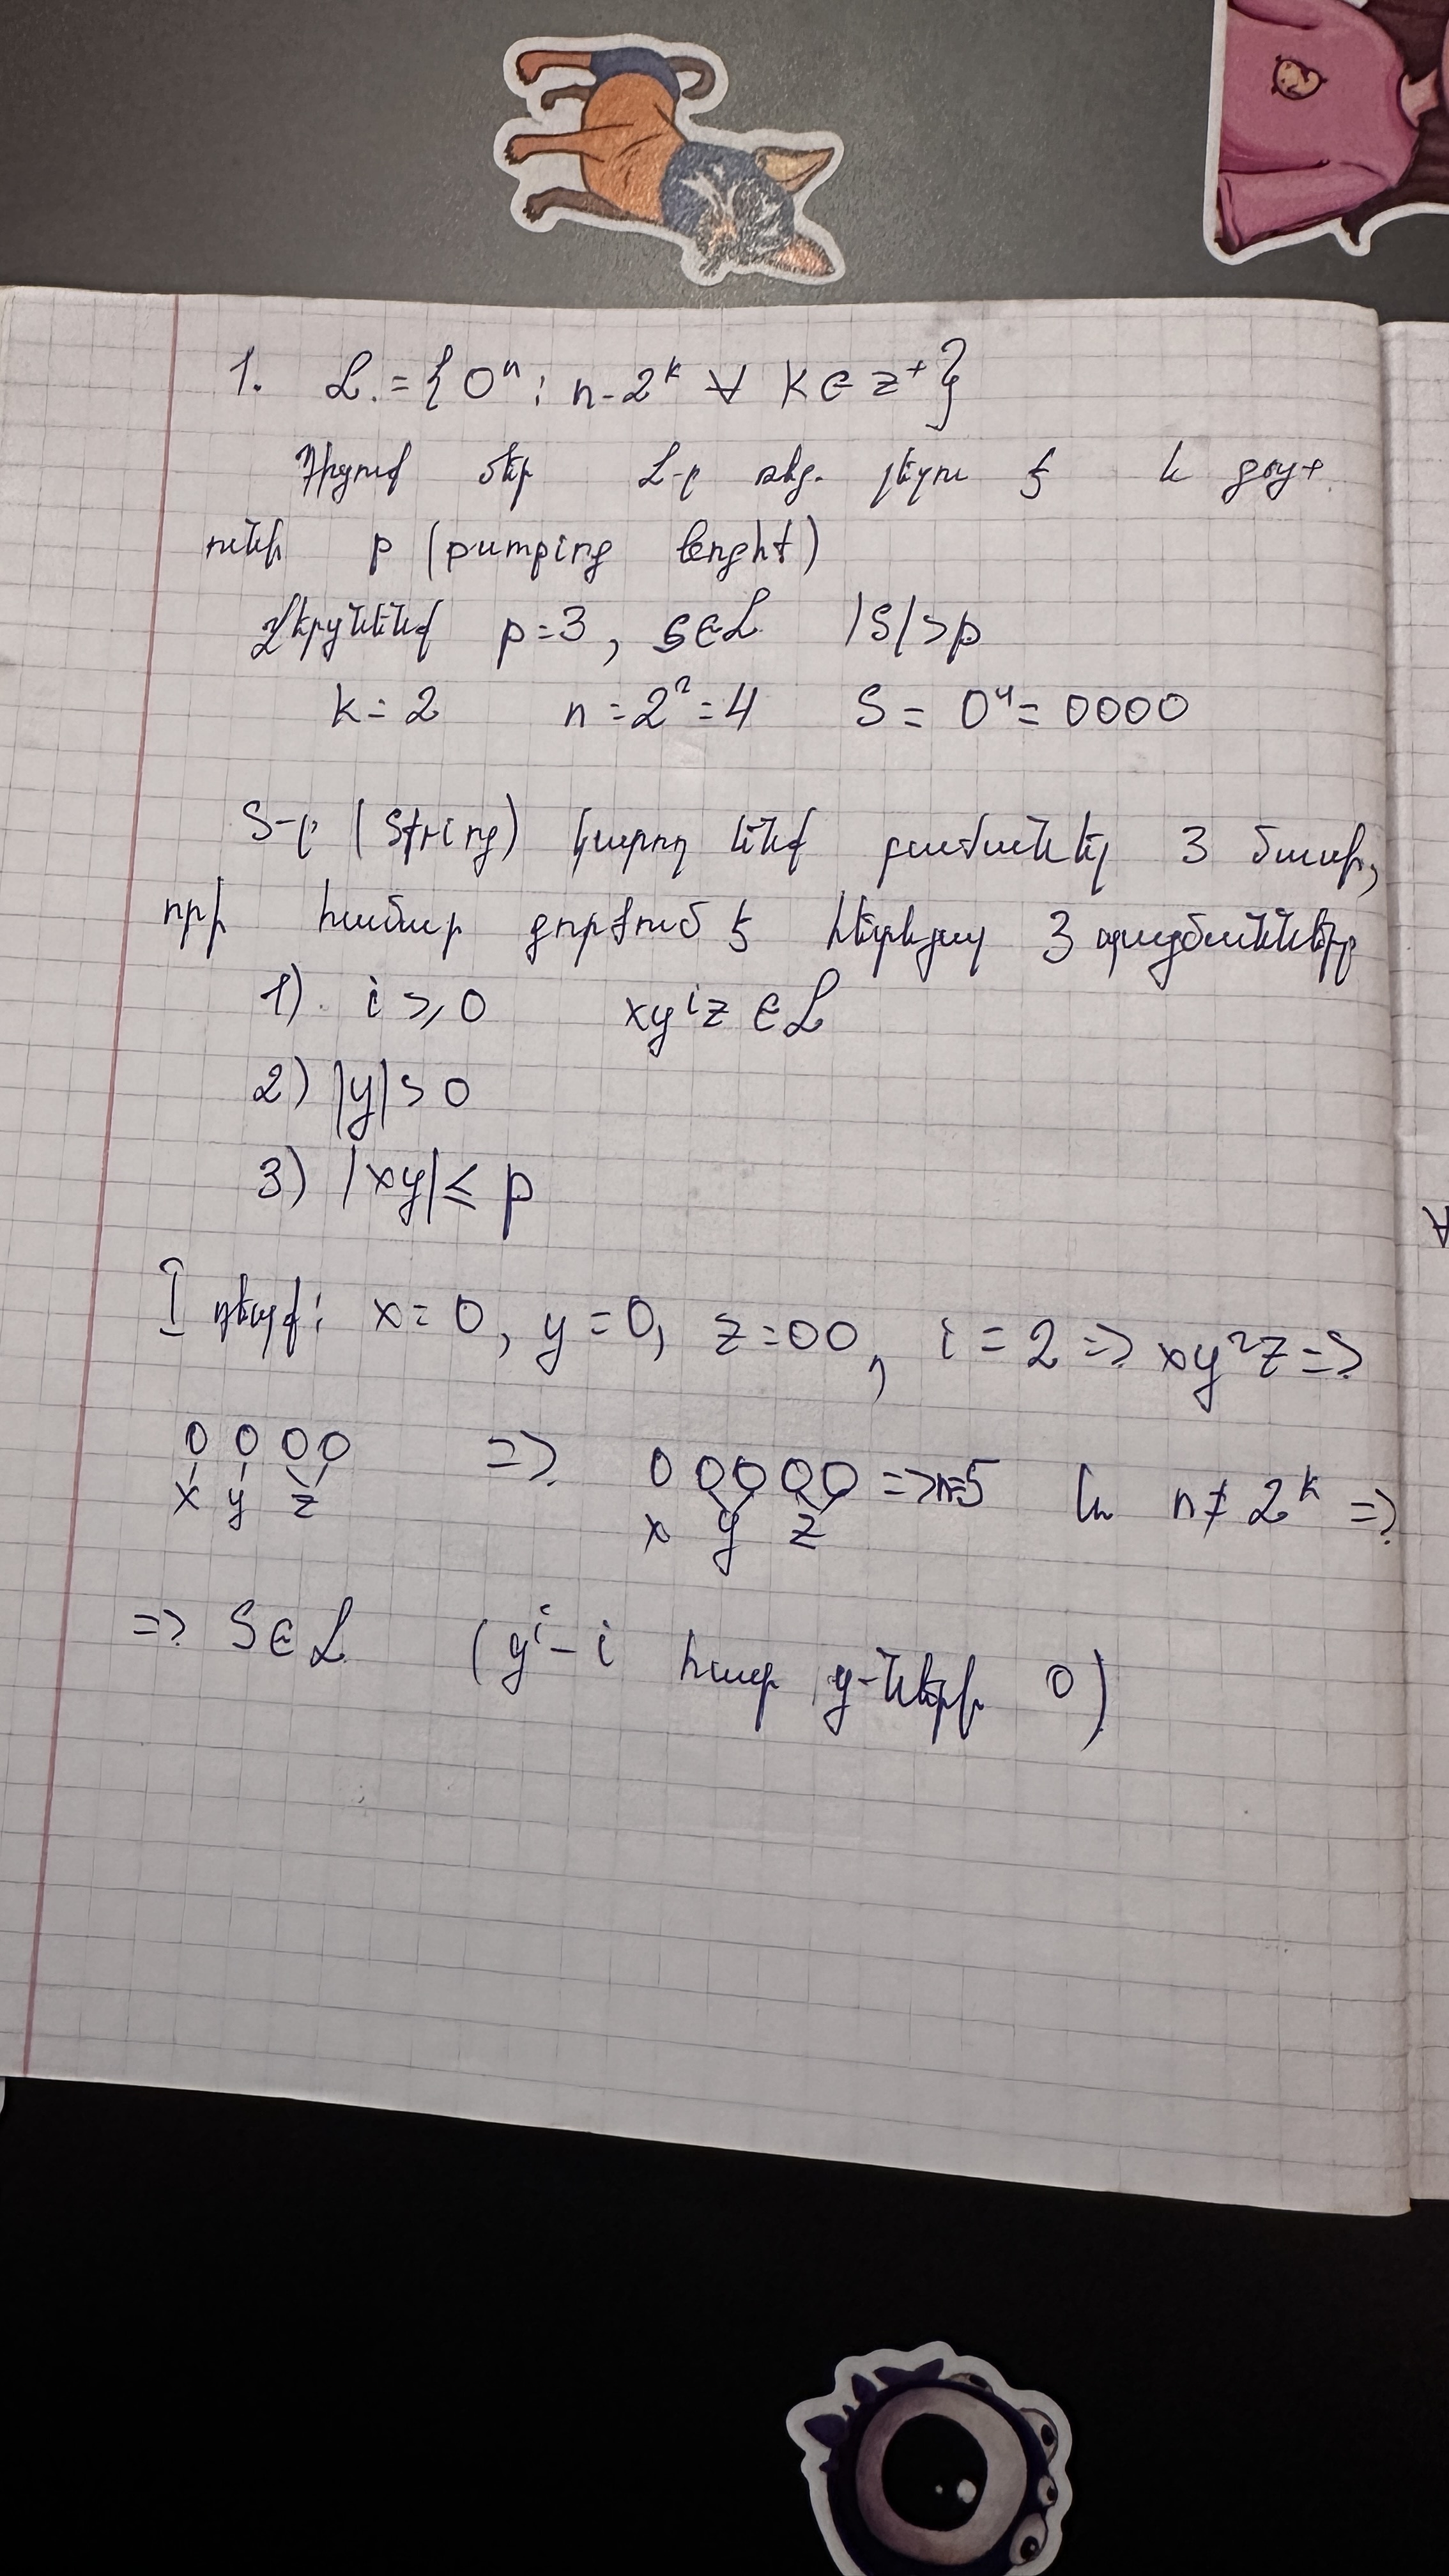 1. L = { 0ⁿ : n - 2ᵏ ∀ k ∈ z⁺ }
Դիցուք մեր L-ը ռեգ. լեզու է և գոյ+
ունի p (pumping lenght)
Վերցնենք p=3, S∈L |S|>p
k=2 n=2²=4 S = 0⁴= 0000
S-ը (String) կարող ենք բաժանել 3 մասի,
որի համար գործում է հետևյալ 3 պայմանները
1) i ⩾ 0 xyⁱz ∈ L
2) |y| > 0
3) |xy| ⩽ p
I դեպք: x=0, y=0, z=00, i=2 => xy²z =>
0 0 00 => 0 00 00 => n=5 և n≠2ᵏ =>
x y z x y z
=> S∈L (yⁱ - i հատ y-ների 0)